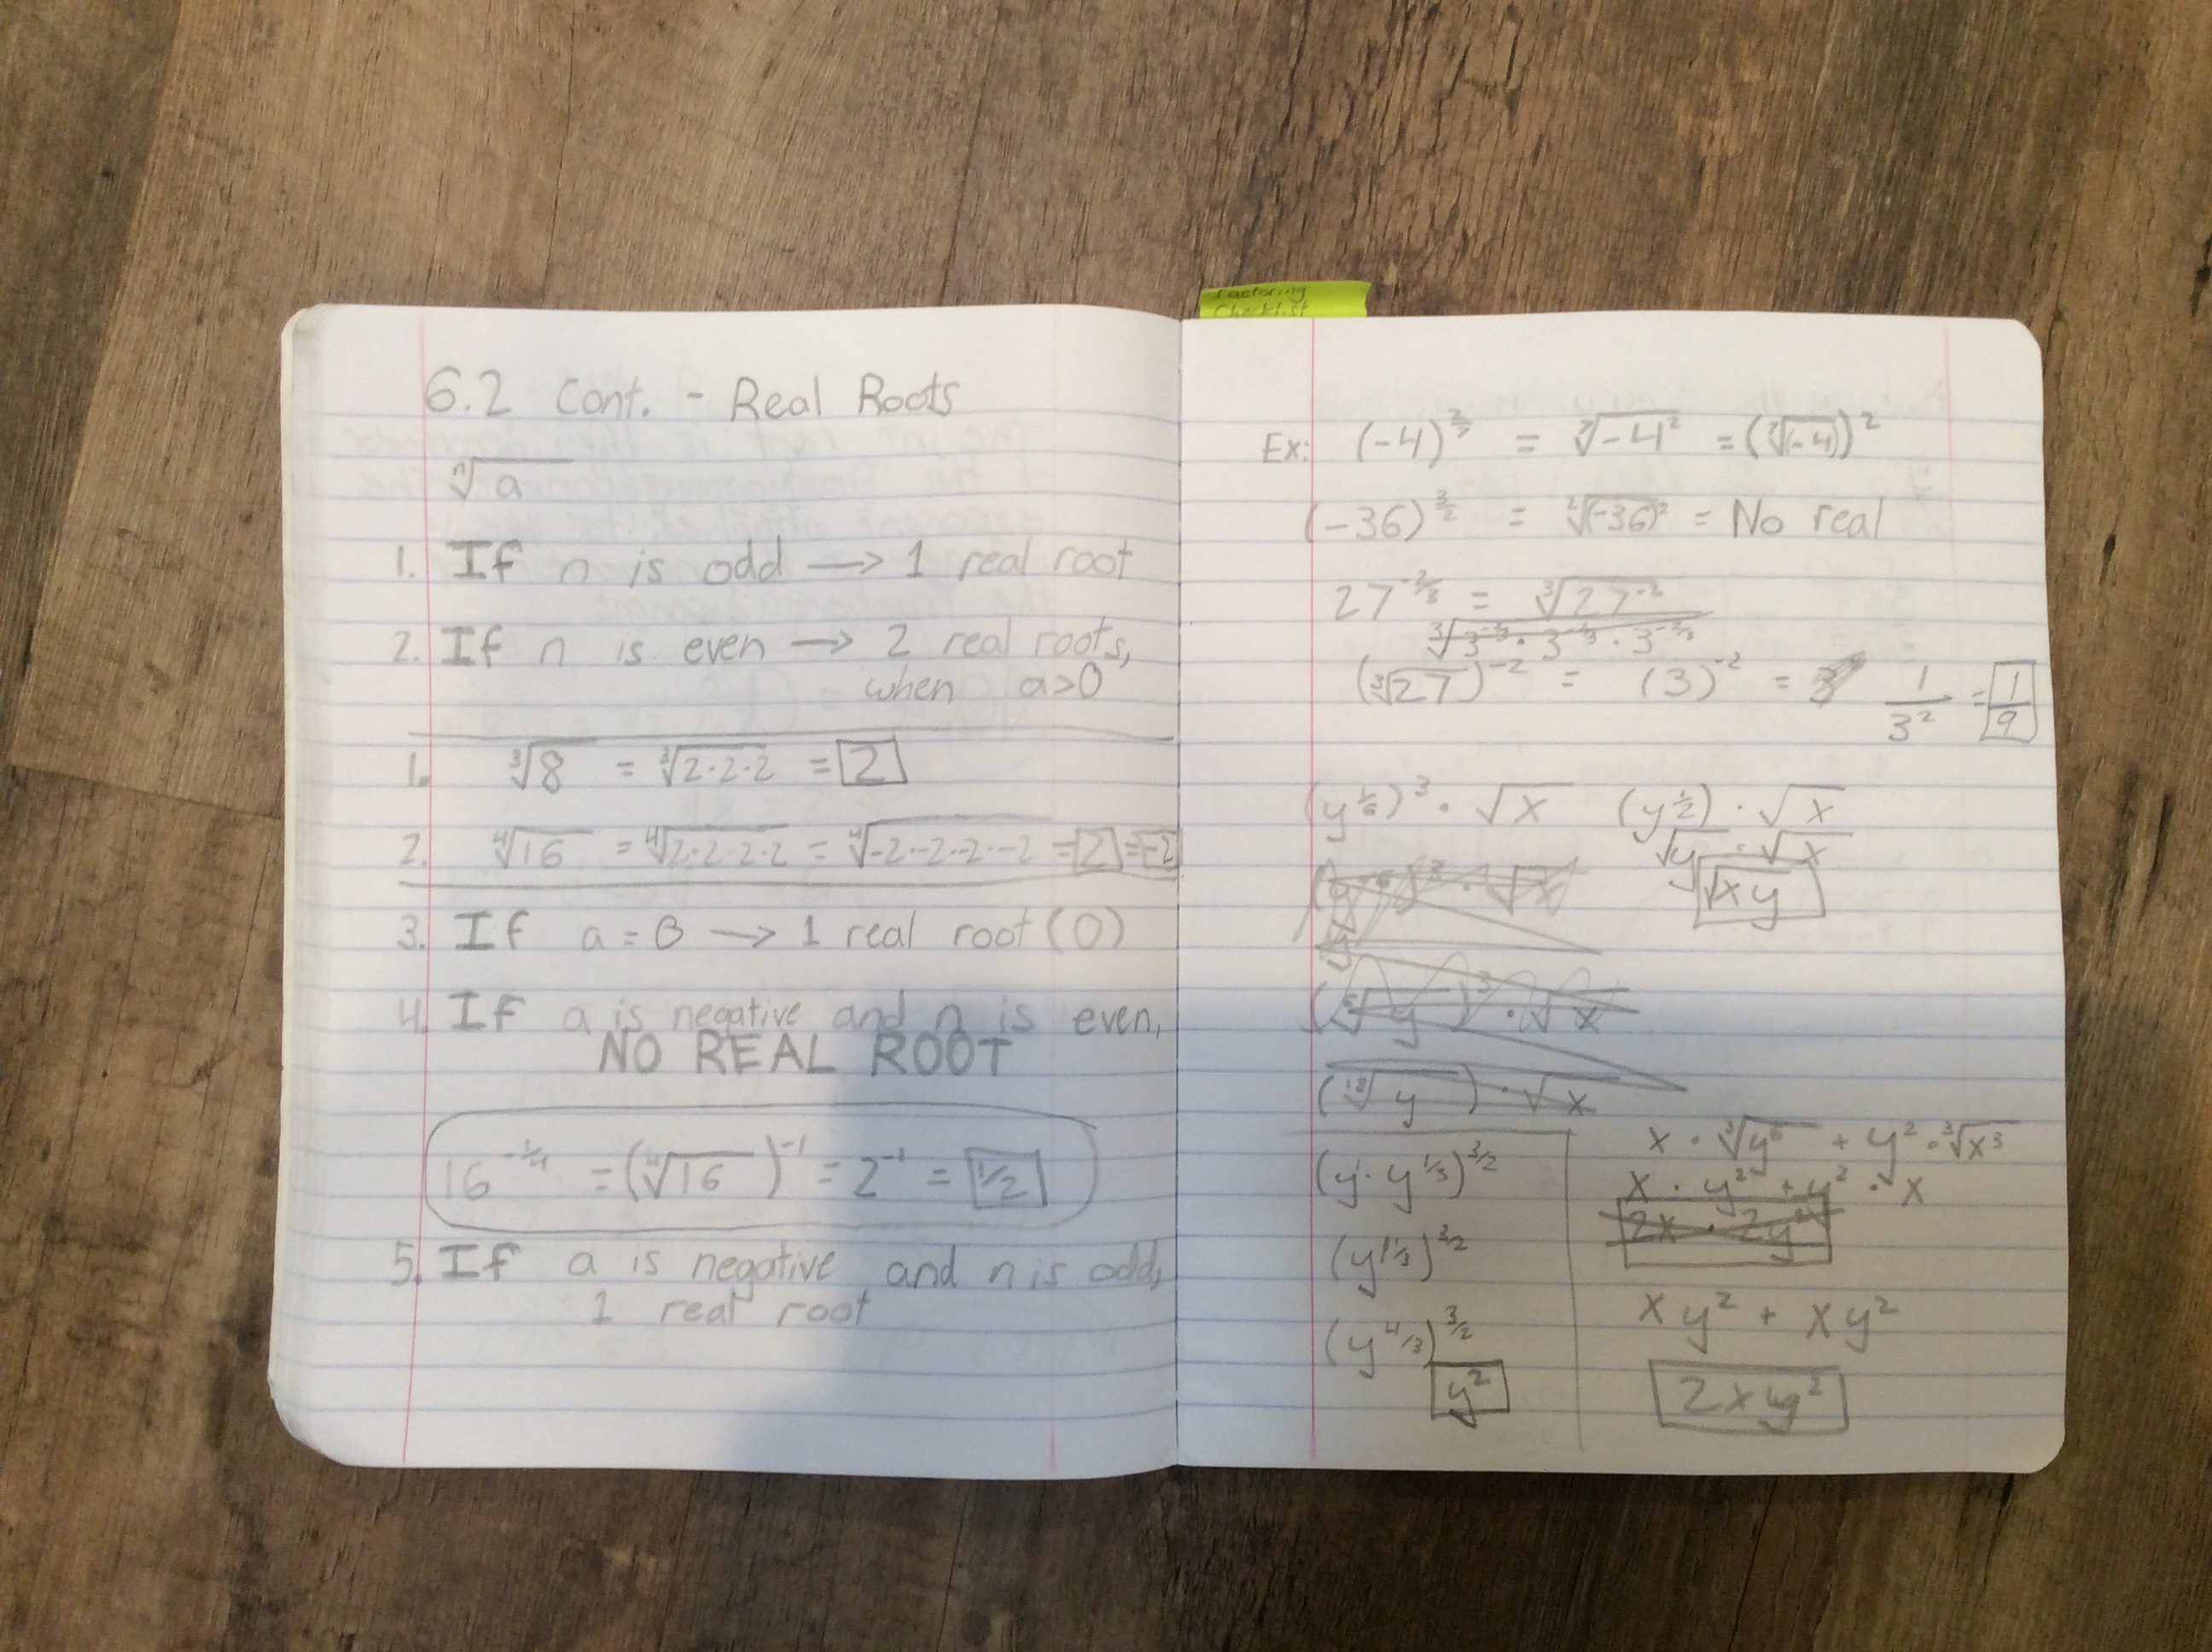 Factoring
Checklist
6.2 Cont. - Real Roots
ⁿ√a
1. If n is odd → 1 real root
2. If n is even → 2 real roots,
when a>0
1. ³√8 = ³√2·2·2 = 2
2. ⁴√16 = ⁴√2·2·2·2 = ⁴√-2·-2·-2·-2 = 2 = -2
3. If a = 0 → 1 real root (0)
4. If a is negative and n is even,
NO REAL ROOT
16^-1/4 = (⁴√16)^-1 = 2^-1 = 1/2
5. If a is negative and n is odd,
1 real root
Ex: (-4)^2/7 = ⁷√-4² = (⁷√(-4))²
(-36)^3/2 = ²√(-36)³ = No real
27^-2/3 = ³√27^-2
³√3^-2/3 · 3^-2/3 · 3^-2/3
(³√27)^-2 = (3)^-2 = 1/3² = 1/9
(y^1/6)³ · √x
(y^1/2) · √x
√y · √x
√xy
(⁶√y)³ · √x
(¹⁸√y) · √x
(y¹ · y^1/3)^3/2
(y^1 1/3)^3/2
(y^4/3)^3/2
y²
x · ³√y⁶ + y² · ³√x³
x · y² + y² · x
2x · 2y²
xy² + xy²
2xy²